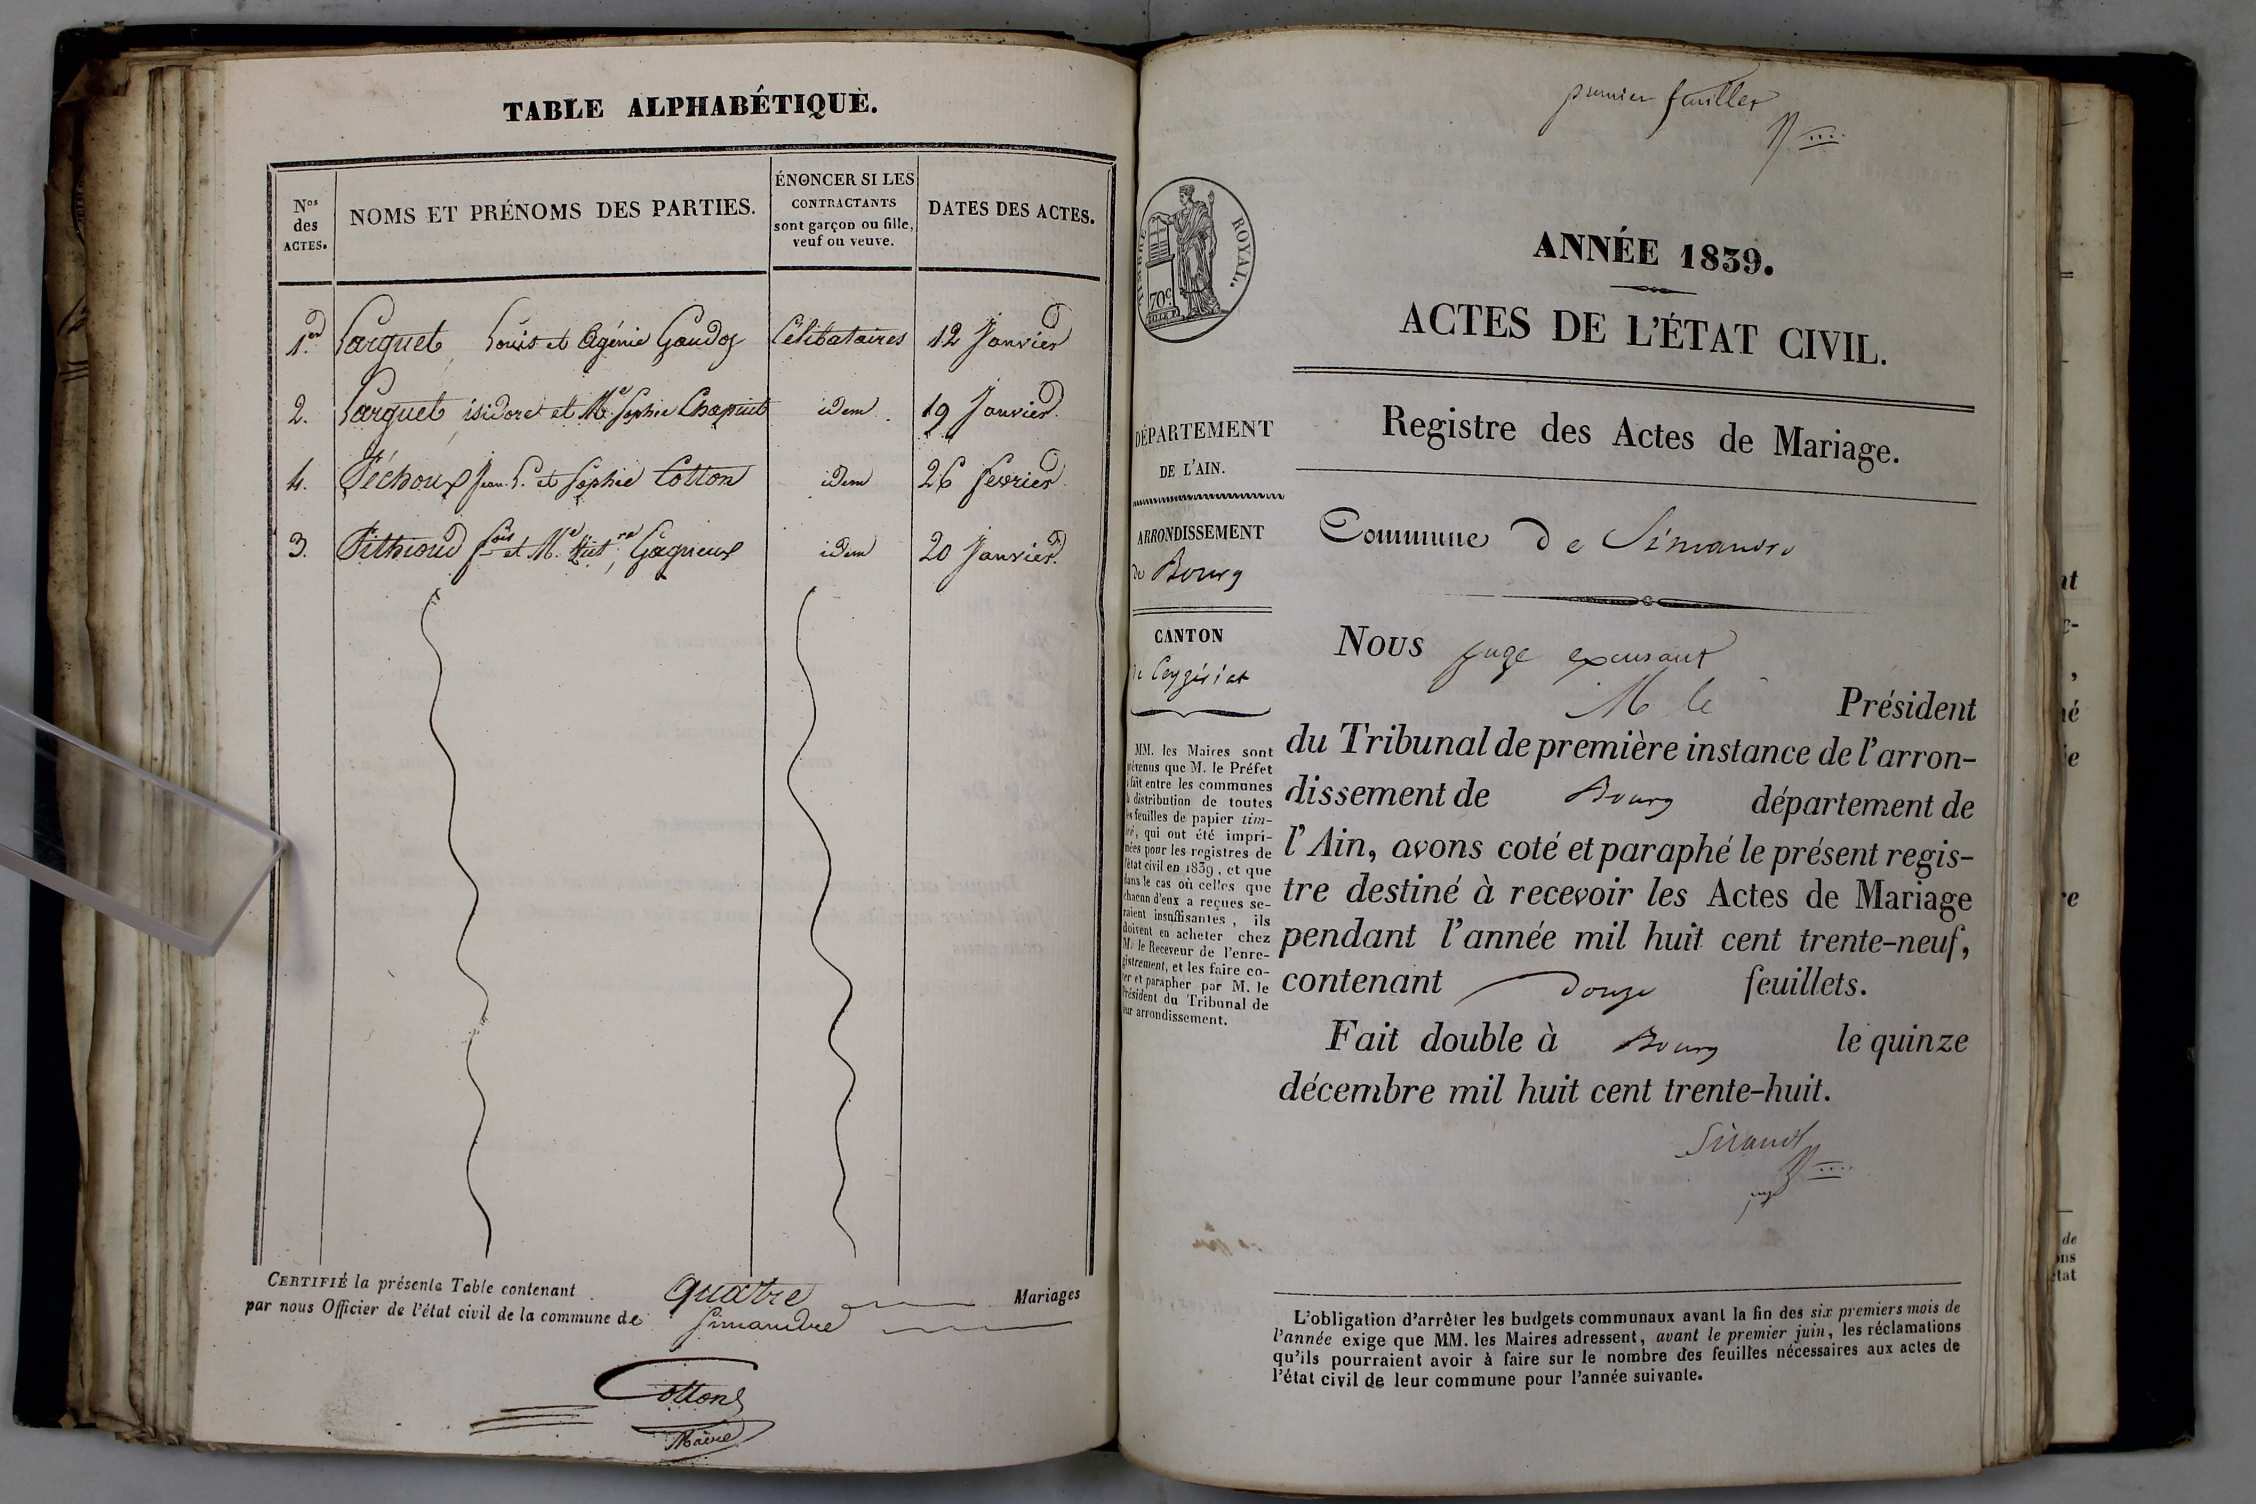 TABLE ALPHABÉTIQUE.
Nos des ACTES.
NOMS ET PRÉNOMS DES PARTIES.
ÉNONCER SI LES CONTRACTANTS sont garçon ou fille, veuf ou veuve.
DATES DES ACTES.
1.er Parquet Louis et Agénie Gaudoz Célibataires 12 Janvier
2. Parquet isidore et Me Sophie Chapuit idem 19 Janvier
4. Péchoux Jean L. et Sophie Cotton idem 26 fevrier
3. Pithioud fois et Me Gagneux idem 20 Janvier
CERTIFIÉ la présente Table contenant quatre Mariages
par nous Officier de l'état civil de la commune de Simandre
Cotton
Maire
premier feuillet
TIMBRE ROYAL.
70c
ANNÉE 1839.
ACTES DE L'ÉTAT CIVIL.
Registre des Actes de Mariage.
DÉPARTEMENT
DE L'AIN.
ARRONDISSEMENT
de Bourg
CANTON
de Ceyzériat
MM. les Maires sont
prévenus que M. le Préfet
a fait entre les communes
la distribution de toutes
les feuilles de papier tim-
bré, qui ont été impri-
mées pour les registres de
l'état civil en 1839, et que
dans le cas où celles que
chacun d'eux a reçues se-
raient insuffisantes, ils
doivent en acheter chez
M. le Receveur de l'enre-
gistrement, et les faire co-
ter et parapher par M. le
Président du Tribunal de
leur arrondissement.
Commune de Simandre
Nous juge excusant
M le Président
du Tribunal de première instance de l'arron-
dissement de Bourg département de
l'Ain, avons coté et paraphé le présent regis-
tre destiné à recevoir les Actes de Mariage
pendant l'année mil huit cent trente-neuf,
contenant douze feuillets.
Fait double à Bourg le quinze
décembre mil huit cent trente-huit.
Sirand
juge
L'obligation d'arrêter les budgets communaux avant la fin des six premiers mois de
l'année exige que MM. les Maires adressent, avant le premier juin, les réclamations
qu'ils pourraient avoir à faire sur le nombre des feuilles nécessaires aux actes de
l'état civil de leur commune pour l'année suivante.